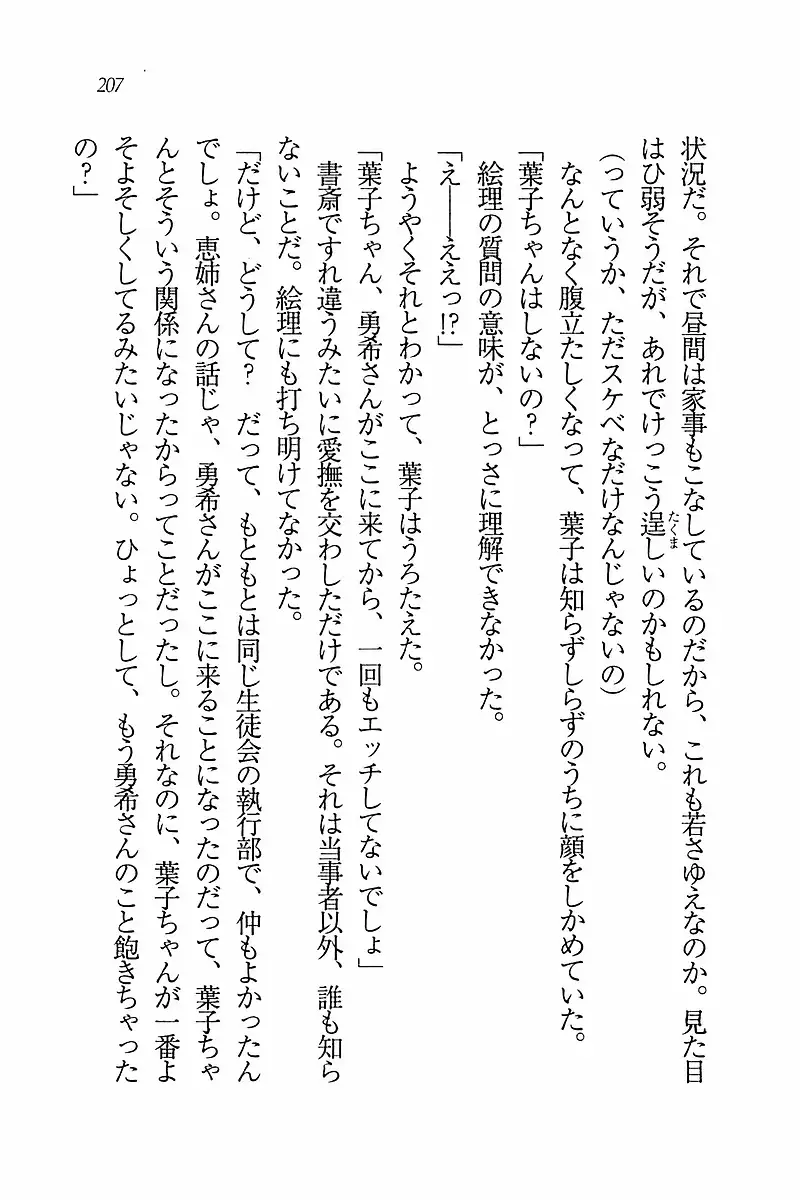 207
状況だ。それで昼間は家事もこなしているのだから、これも若さゆえなのか。見た目
はひ弱そうだが、あれでけっこう逞しいのかもしれない。
たくま
(っていうか、ただスケベなだけなんじゃないの)
なんとなく腹立たしくなって、葉子は知らずしらずのうちに顔をしかめていた。
「葉子ちゃんはしないの?」
絵理の質問の意味が、とっさに理解できなかった。
「え――ええっ!?」
ようやくそれとわかって、葉子はうろたえた。
「葉子ちゃん、勇希さんがここに来てから、一回もエッチしてないでしょ」
書斎ですれ違うみたいに愛撫を交わしただけである。それは当事者以外、誰も知ら
ないことだ。絵理にも打ち明けてなかった。
「だけど、どうして? だって、もともとは同じ生徒会の執行部で、仲もよかったん
でしょ。恵姉さんの話じゃ、勇希さんがここに来ることになったのだって、葉子ちゃ
んとそういう関係になったからってことだったし。それなのに、葉子ちゃんが一番よ
そよそしくしてるみたいじゃない。ひょっとして、もう勇希さんのこと飽きちゃった
の?」